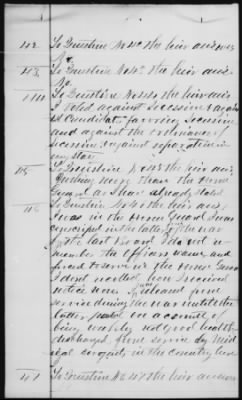 42. To Question No 42 the heir answers
No.
43. To Question No 43 the heir ans.
No.
44 To Question No 44 the heir ans.
I voted against Secession & against
candidates favoring Secession
and against the ordinance of
secession & against separation in
my State
45 To Question No 45 the heir ans.
Nothing more than the Home
Guard as I have already stated
46 To Question No 46 the heir ans
I was in the Home Guard I was
conscripted in the latter of the War
the last and I do not re-
member the Officers names and
forced to serve in the Home Guard
I dont recollect how I received
notice now I was released from
service during the war until the
latter part on account of
being weakly not good health
discharged from service by Med-
ical in the Country here
47 To Question No 47 the heir answers